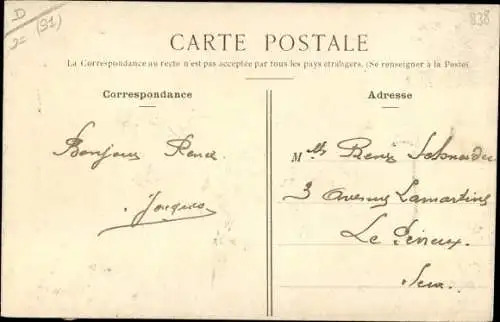 D (91)
2=
838
CARTE POSTALE
La Correspondance au recto n'est pas acceptée par tous les pays étrangers. (Se renseigner à la Poste)
Correspondance
Adresse
Bonjour Renée
Jacques
Mlle Renée Schneider
3 avenue Lamartine
Le Perreux
Seine